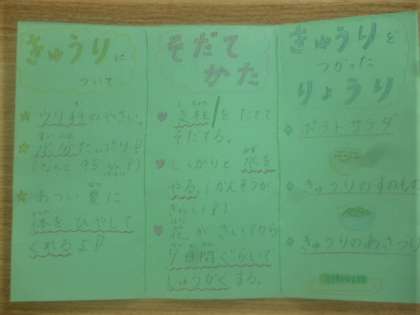 きゅうりに
ついて
ウリ科のやさい。
水分たっぷり!!
あつい夏に
体をひやして
くれるよ!!
そだて
かた
支柱をたてて
そだてる。
しっかりと水を
やる。
花がさいてから
7日間ぐらいで
しゅうかくする。
きゅうりを
つかった
りょうり
ポテトサラダ
きゅうりのすのもの
きゅうりのあさづけ